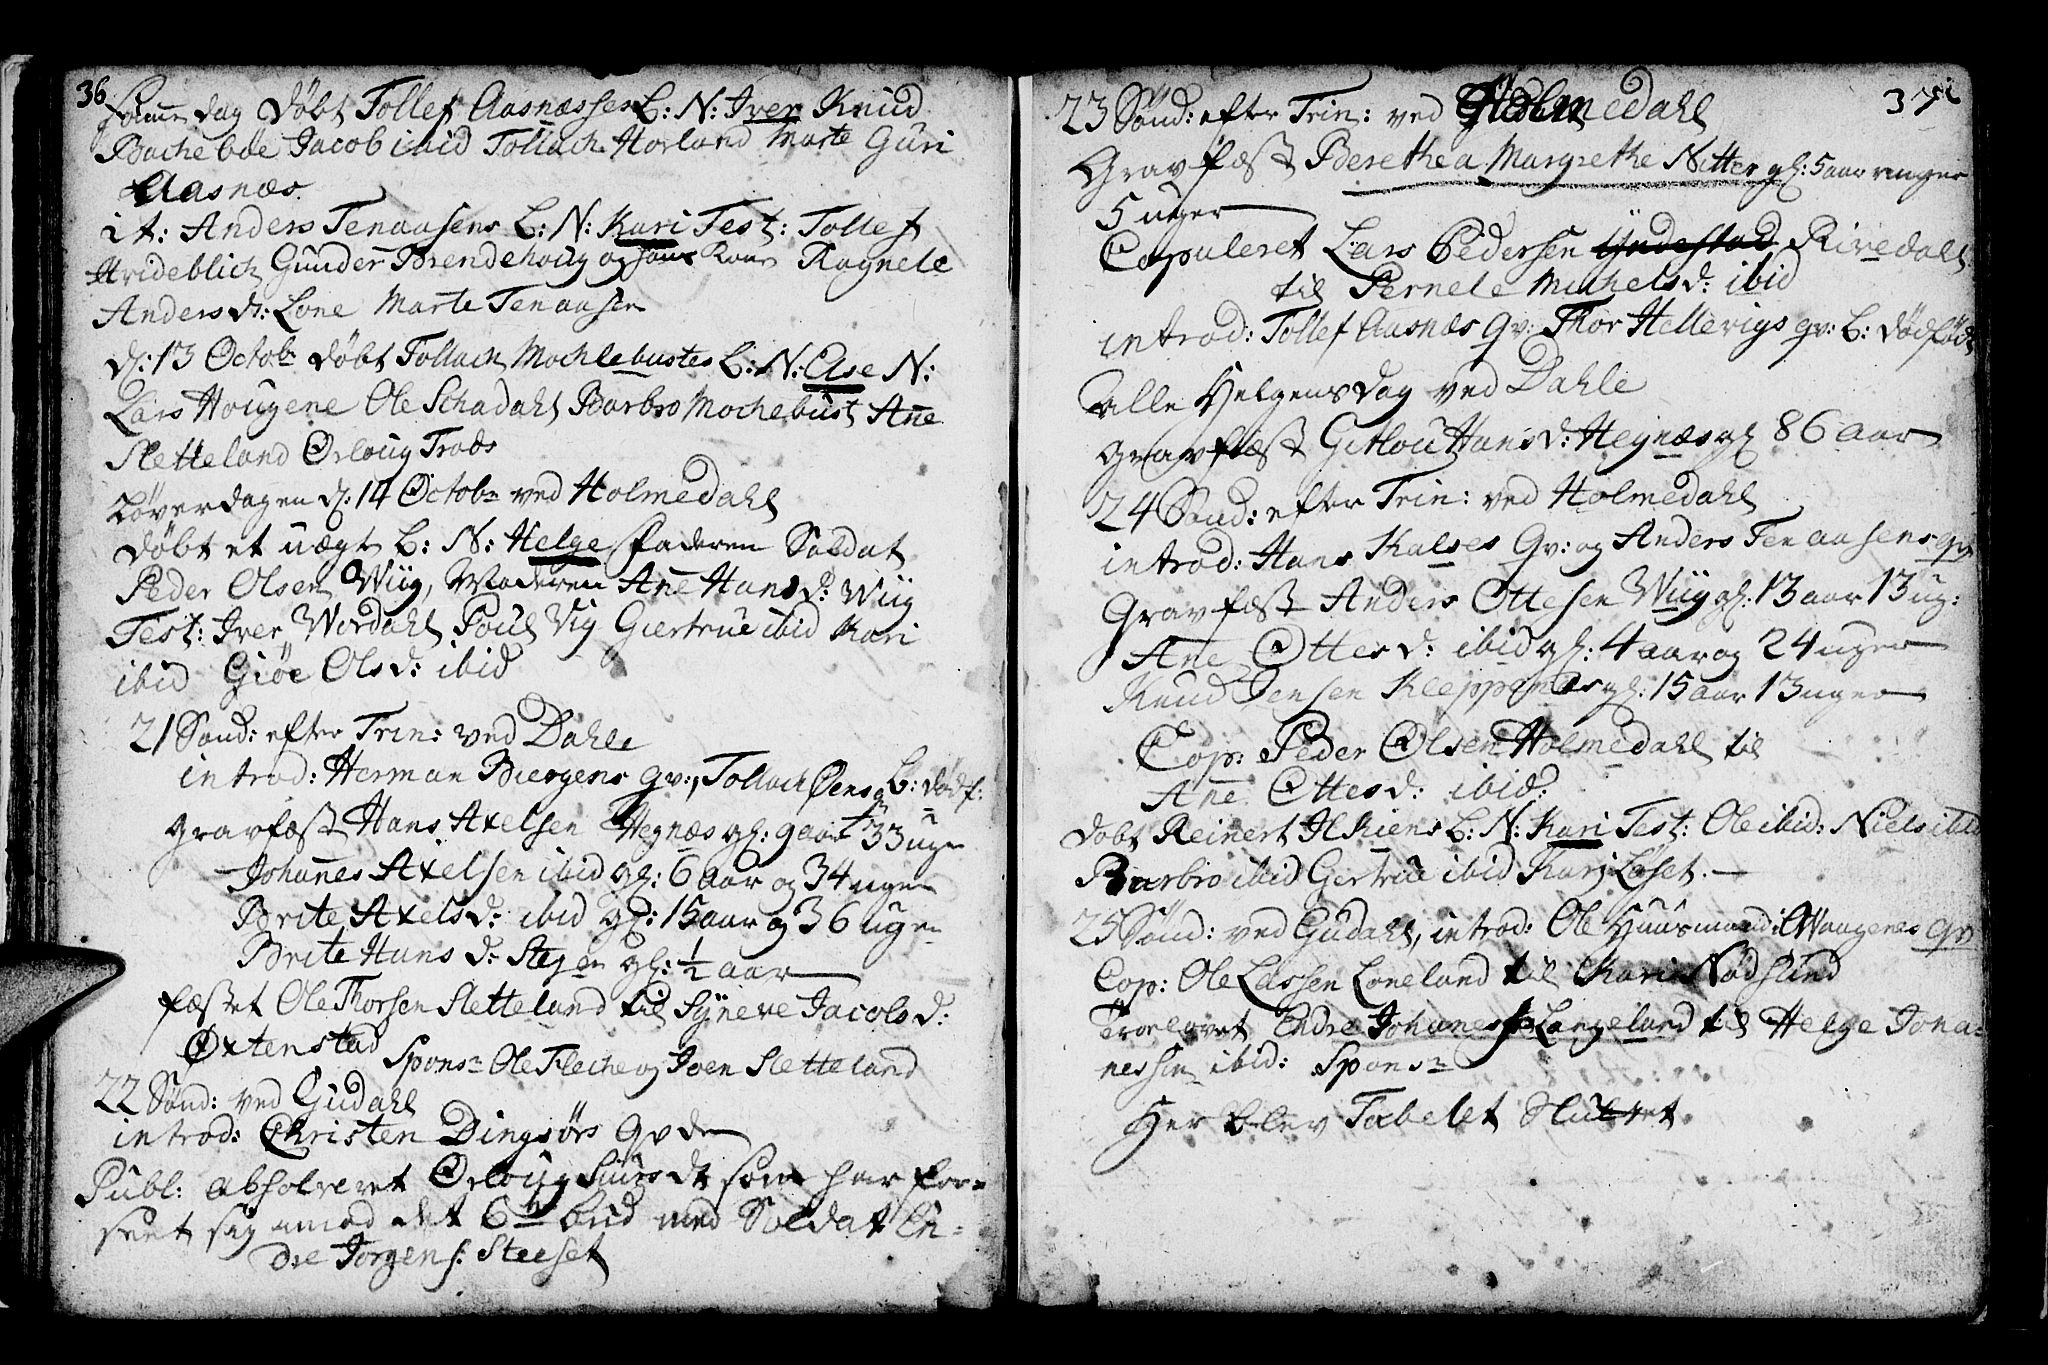 36
Samme dag døbt Tollef Aasnæsses B: N: Iver Knud
Bachebøe Jacob ibid Tollach Horland Marte Guri
Aasnæs.
it: Anders Tenaasens B: N: Kari Test: Tollef
Gunder Brendehoug og hans Kone Ragnele
Anders d: Lone Marte Tenaasen
d: 13 Octobr døbt Tollach Mochlebustes B: N: Ase N:
Lars Hougene Ole Schadahl Barbro Mochebust Ane
Sletteland Ørloug Trads
Løverdagen d: 14 Octobr ved Holmedahl
døbt et uægte B: N: Helge Faderen Soldat
Peder Olsen Wiig, Moderen Ane Hans d: Wiig
Test: Iver Wordahl Poul Vig Giertrue ibid Kari
ibid Giøe Ols d: ibid
21 Sønd: efter Trin: ved Dahle
introd: Herman Biergens Qv:, Tollach Øens B: dødf:
Gravfæst Hans Axelsen Hegnæs gl: 9 aar 33 uger
Johannes Axelsen ibid gl: 6 aar og 34 uger
Brite Axels d: ibid gl: 15 aar og 36 uger
Brite Hans d: Stegen gl: 1/2 aar
fæstet Ole Thorsen Sletteland til Syneve Jacobs d:
Øxtenstad Spons: Ole Fleche og Joen Sletteland
22 Sønd: ved Gudahl
introd: Christen Dingsørs Qvde
Publ: absolveret Ørloug Siurs dt som har for=
seet sig imod det 6te bud med Soldat En=
dre Jørgens: Steeset
37
23 Sønd: efter Trin: ved Holmedahl
Gravfæst Berethea Margrethe Nitter gl: 5 aar ringer
5 uger
Copuleret Lars Pedersen Yndestad Rivedahl
til Pernele Michels d: ibid
introd: Tollef Aasnæs Qv: Thor Hellevigs qv: B: dødfødt
Alle Helgens dag ved Dahle
Gravfæst Hans d: Hegnæs gl 86 aar
24 Sønd: efter Trin: ved Holmedahl
introd: Hans Kalses Qv: og Anders Tenaasens qv
Gravfæst Anders Ottesen Wiig gl: 13 aar 13 ug:
Ane Ottes d: ibid gl: 4 aar og 24 uger
Knud Jensen Kleppenæs gl: 15 aar 13 uger
Cop: Peder Olsen Holmedahl til
Ane Ottes d: ibid:
døbt Reinert Ilkiens B: N: Kari Test: Ole ibid: Niels ibid
Barbro ibid Giertrue ibid Kari Løset.
25 Sønd: ved Gudahl, introd: Ole Huusmand i Waagenes qv
Cop: Ole Lassen Loneland til Kari Nødslund
Troelovet Endre Johaness: Langeland til Helge Joha=
nessen ibid: Spons:
Her blev Tabelet Sluttet